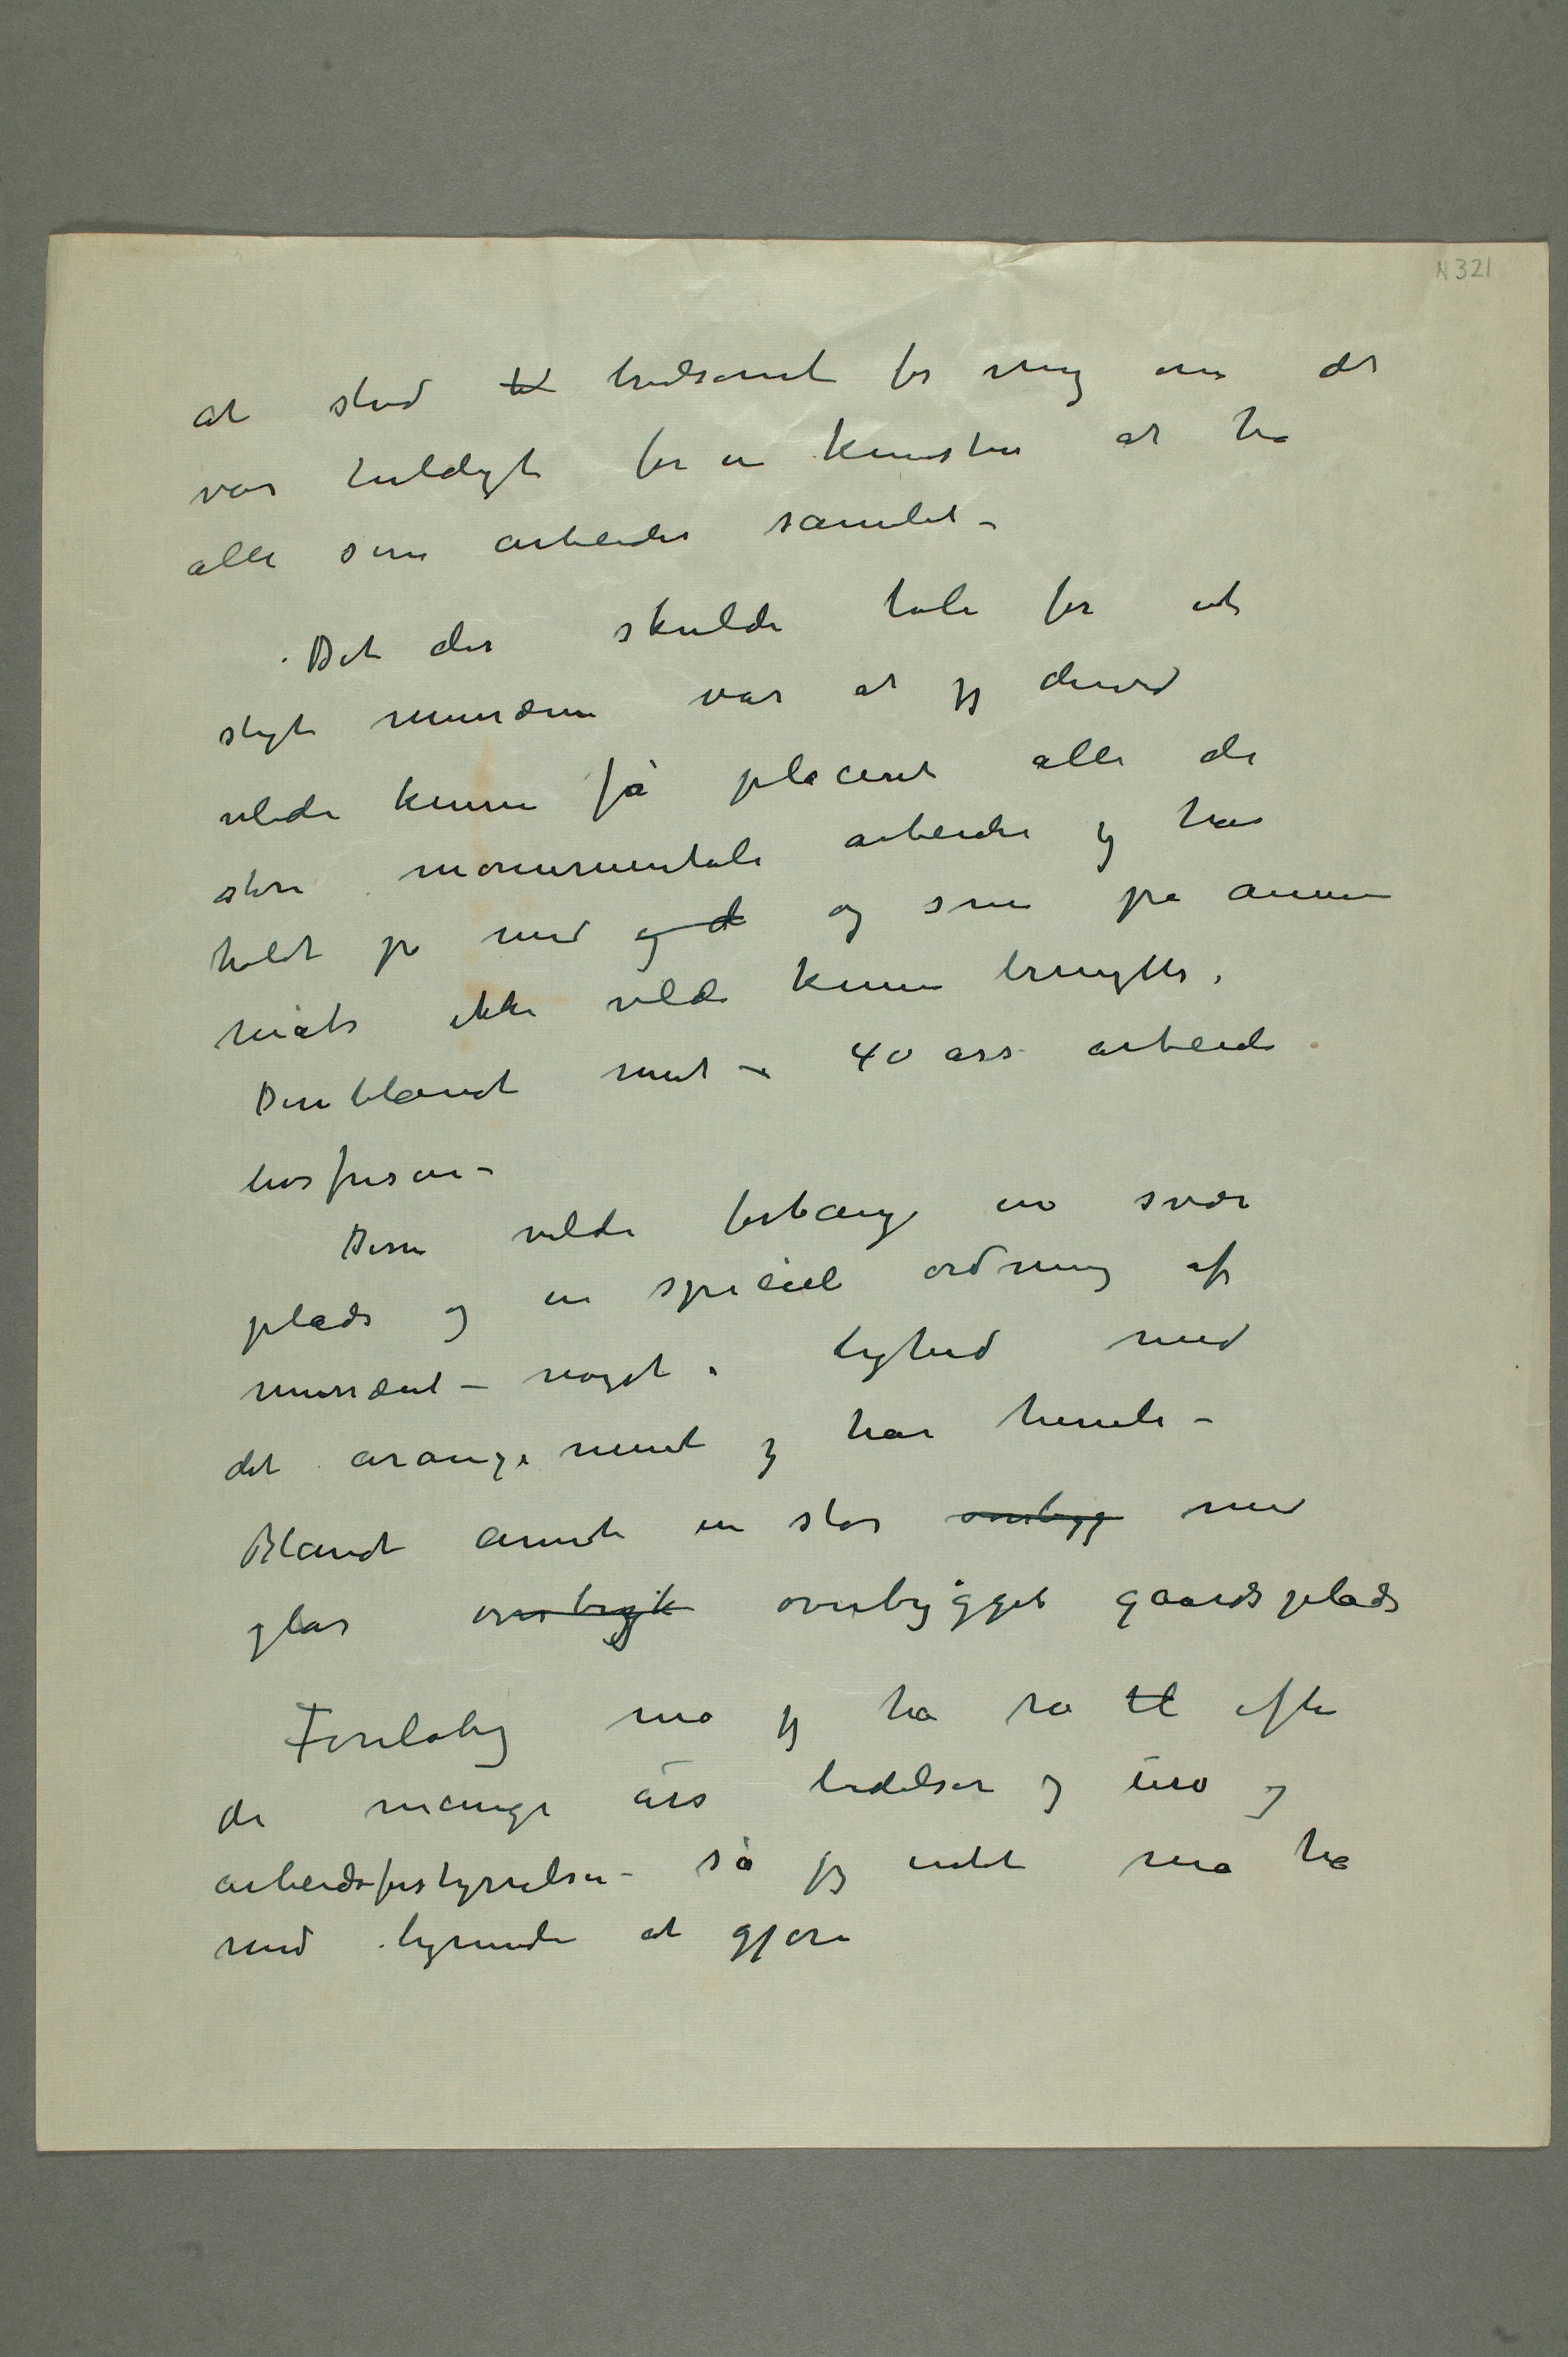 N 321
at stod til tvilsomt for mig om det
var heldigt for en kunstner at ha
alle sine arbeider samlet –
Det der skulde tale for et
sligt musæum var at jeg derved
vilde kunne få placeret alle de
store monumentale arbeider jeg har
holdt på med og d og som på annen
måte ikke vilde kunne benyttes.
Deriblandt mit – 40 års arbeide
livsfrisen –
Denne vilde forlange en svær
plads og en speciel ordning af
musæet – noget i lighed med
det arangement jeg har hernede –
Blandt annet en stor overbygg med
glas overbygt overbygget gaardsplads
Foreløbig må jeg ha ro til efter
de mange års lidelser og uro og
arbeidsforstyrrelser – så jeg intet må ha
med lignende at gjøre